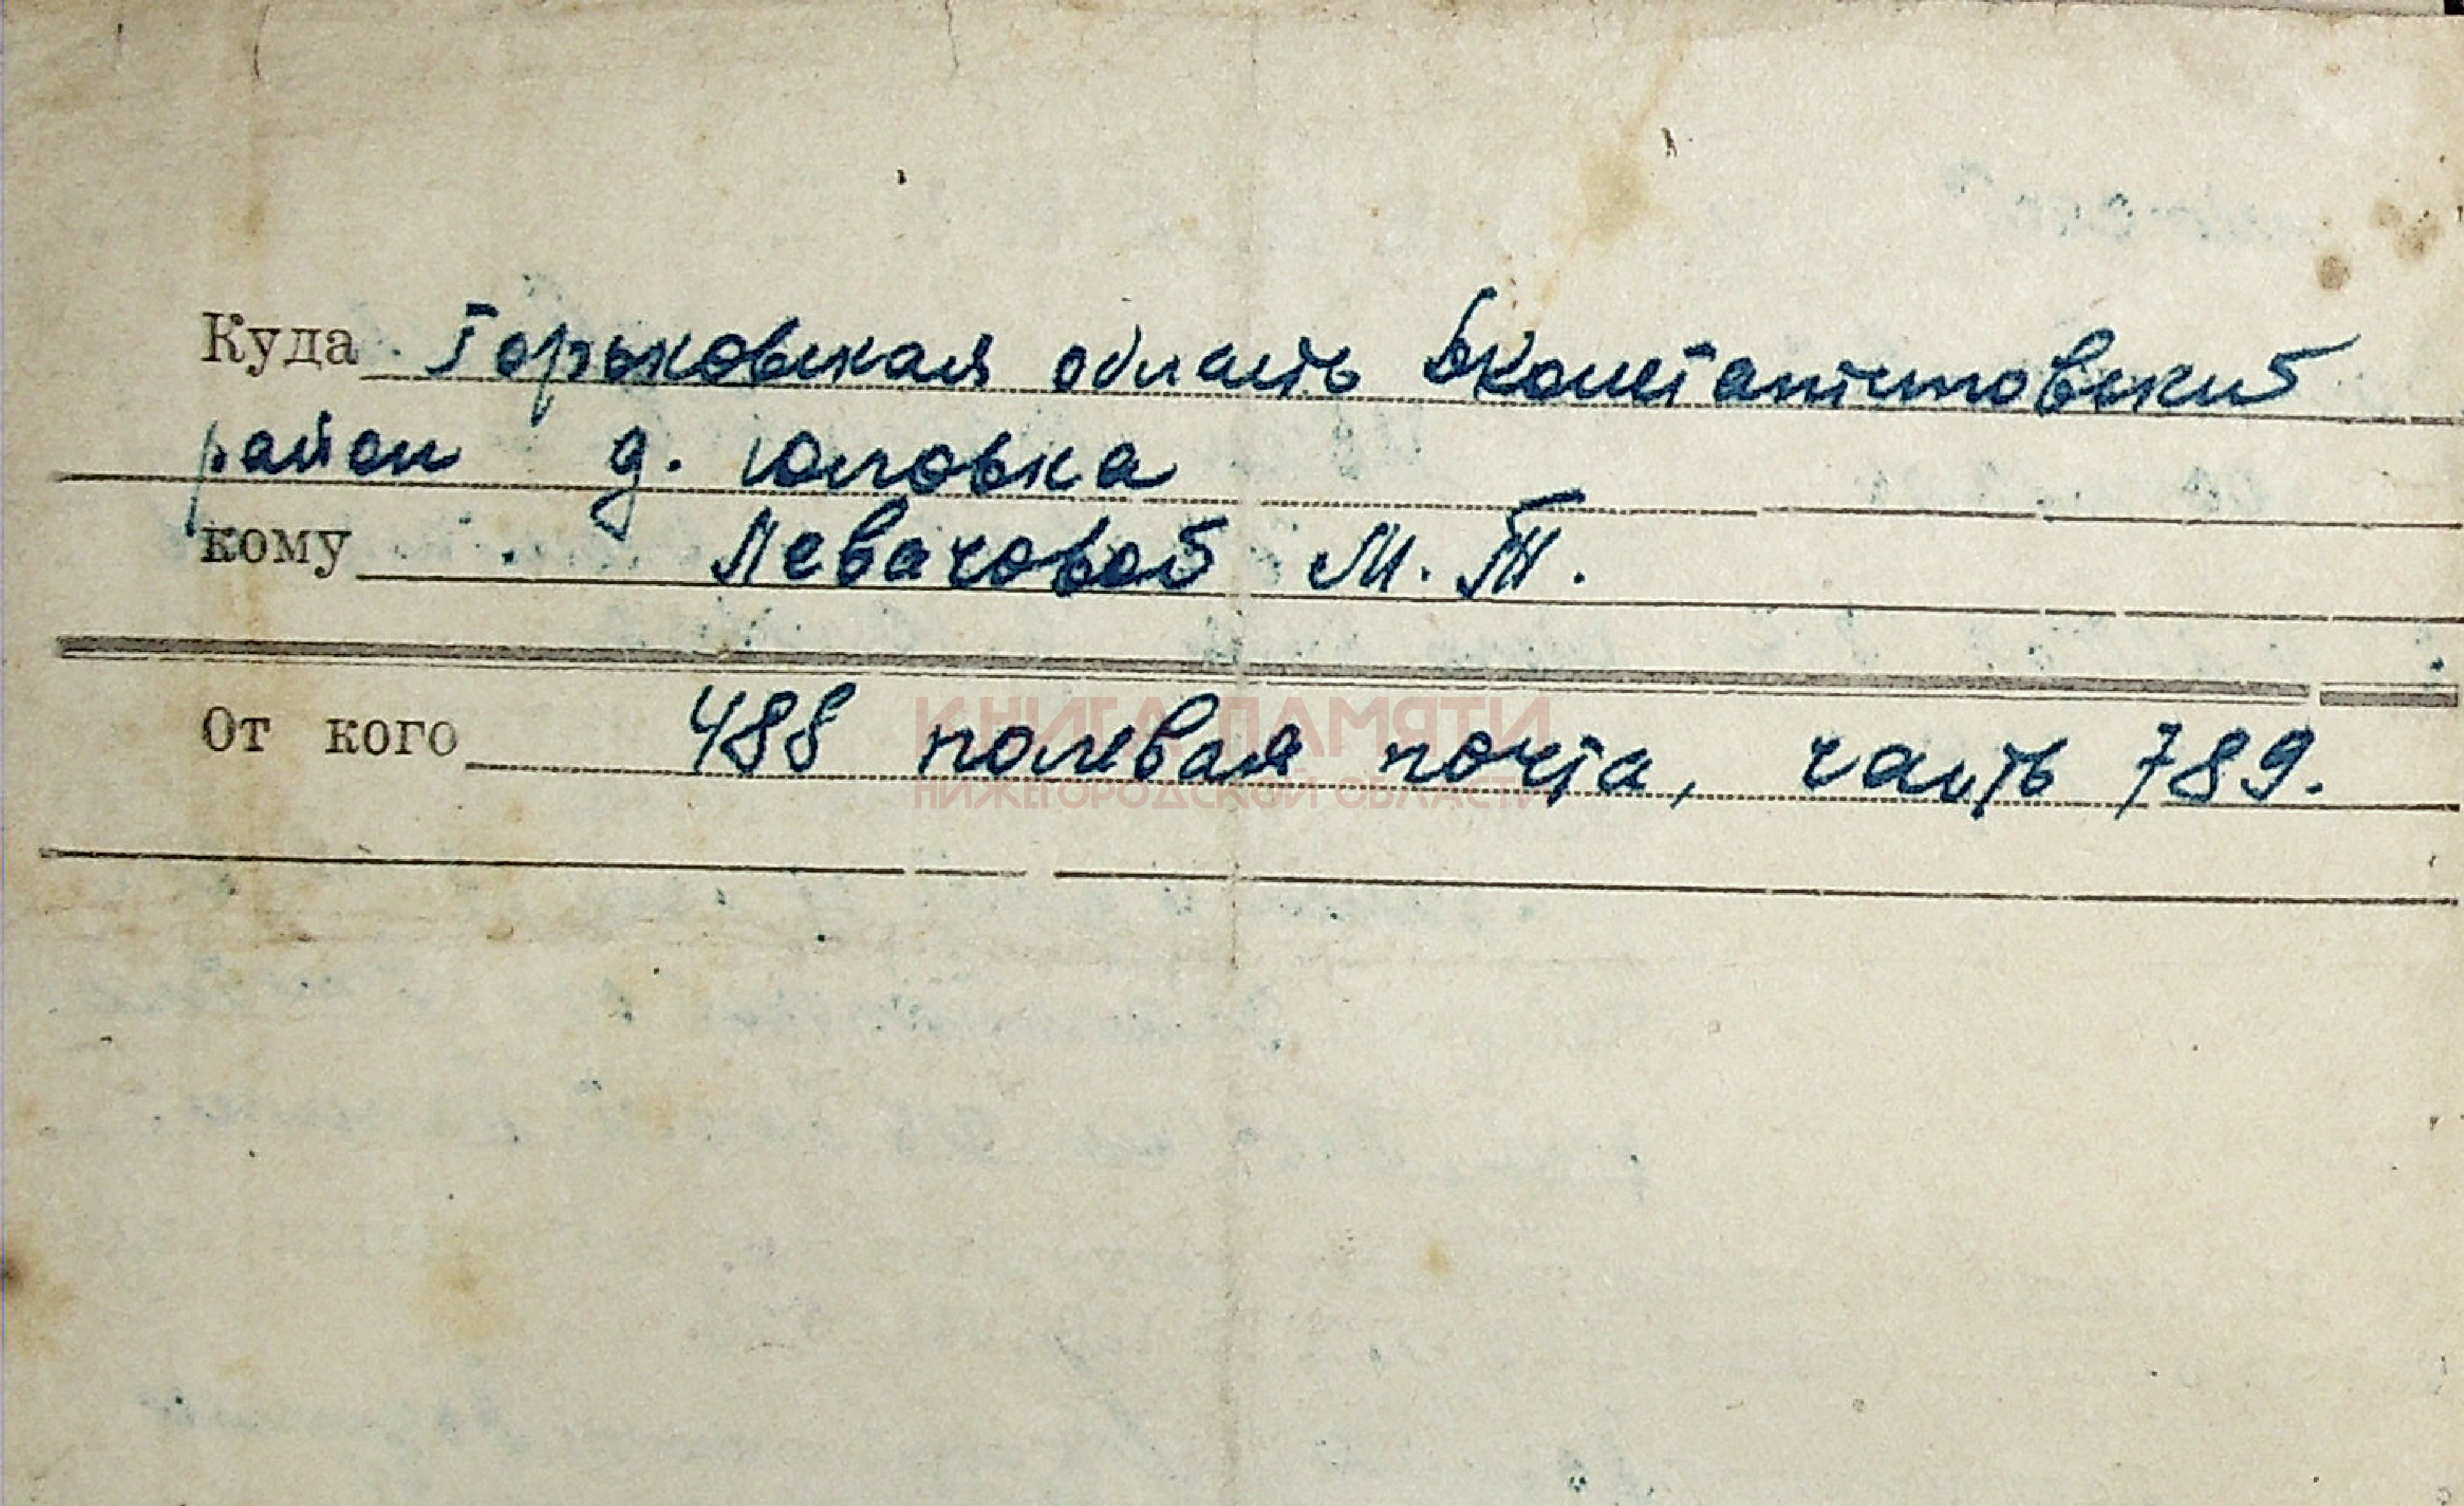 Куда Горьковская область Бконстантиновский
район д. Юловка
кому Левачовой М. Т.
КНИГА ПАМЯТИ
От кого 488 полевая почта, часть 789.
НИЖЕГОРОДСКОЙ ОБЛАСТИ